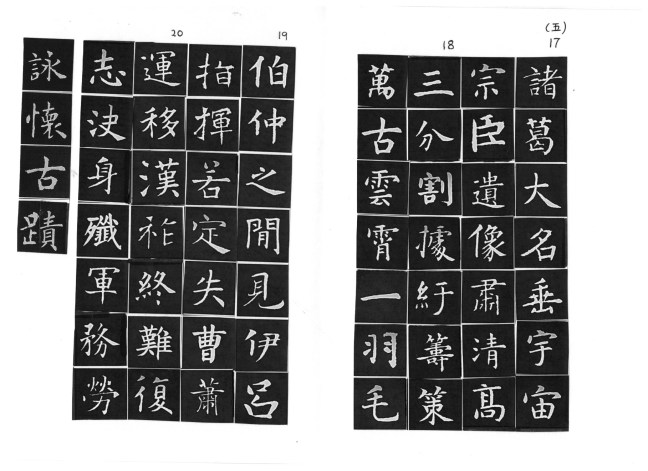 (五)
17
諸葛大名垂宇宙
宗臣遺像肅清高
18
三分割據紆籌策
萬古雲霄一羽毛
19
伯仲之間見伊呂
指揮若定失曹蕭
20
運移漢祚終難復
志決身殲軍務勞
詠懷古蹟